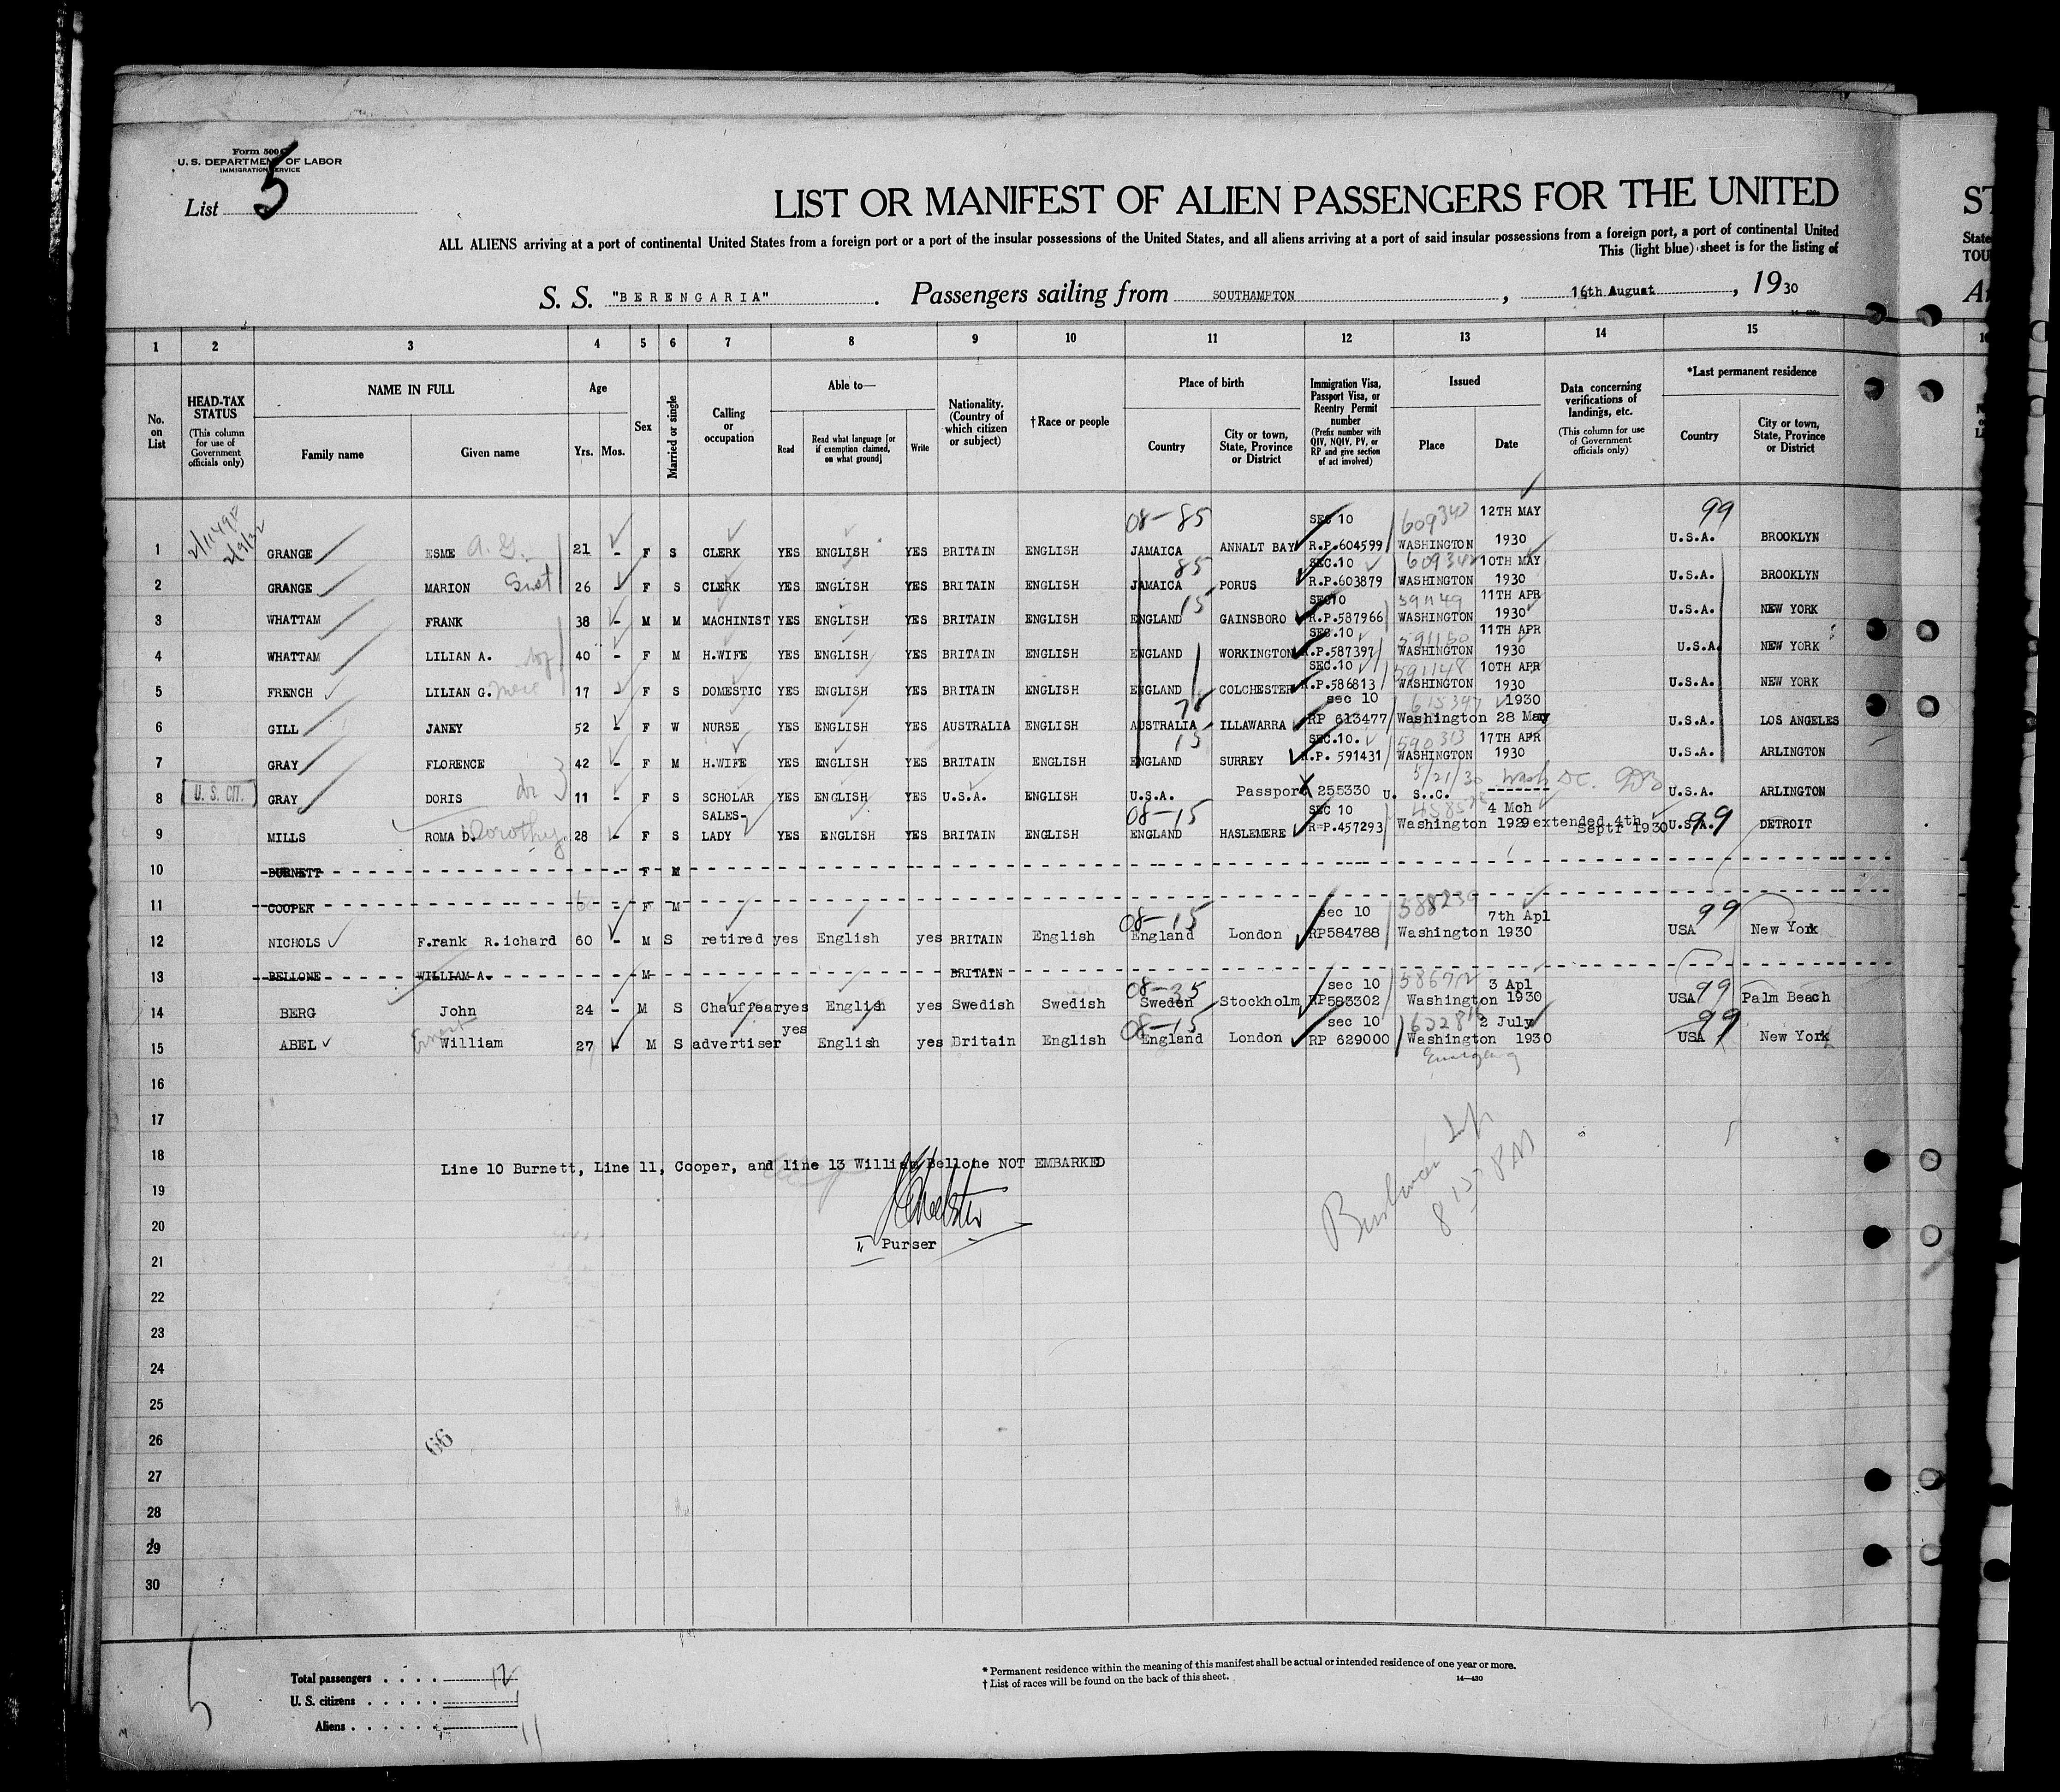 Form 500
U. S. DEPARTMENT OF LABOR
IMMIGRATION SERVICE
List 5
LIST OR MANIFEST OF ALIEN PASSENGERS FOR THE UNITED
ALL ALIENS arriving at a port of continental United States from a foreign port or a port of the insular possessions of the United States, and all aliens arriving at a port of said insular possessions from a foreign port, a port of continental United
This (light blue) sheet is for the listing of
S. S. "BERENGARIA". Passengers sailing from SOUTHAMPTON, 16th August, 1930
1 2 3 4 5 6 7 8 9 10 11 12 13 14 15
No. on List
HEAD-TAX STATUS (This column for use of Government officials only)
NAME IN FULL
Family name Given name
Age
Yrs. Mos.
Sex
Married or single
Calling or occupation
Able to—
Read
Read what language [or if exemption claimed, on what ground]
Write
Nationality. (Country of which citizen or subject)
†Race or people
Place of birth
Country
City or town, State, Province or District
Immigration Visa, Passport Visa, or Reentry Permit number (Prefix number with QIV, NQIV, PV, or RP and give section of act involved)
Issued
Place Date
Data concerning verifications of landings, etc. (This column for use of Government officials only)
*Last permanent residence
Country
City or town, State, Province or District
08-85 SEC 10 609340 12TH MAY 99
1 GRANGE ESME A. G. 21 - F S CLERK YES ENGLISH YES BRITAIN ENGLISH JAMAICA ANNALT BAY R.P.604599 WASHINGTON 1930 U.S.A. BROOKLYN
85 SEC.10 609342 10TH MAY
2 GRANGE MARION Sist 26 - F S CLERK YES ENGLISH YES BRITAIN ENGLISH JAMAICA PORUS R.P.603879 WASHINGTON 1930 U.S.A. BROOKLYN
15 SEC10 591149 11TH APR
3 WHATTAM FRANK 38 - M M MACHINIST YES ENGLISH YES BRITAIN ENGLISH ENGLAND GAINSBORO R.P.587966 WASHINGTON 1930 U.S.A. NEW YORK
SEC.10 591150 11TH APR
4 WHATTAM LILIAN A. 40 - F M H.WIFE YES ENGLISH YES BRITAIN ENGLISH ENGLAND WORKINGTON R.P.587397 WASHINGTON 1930 U.S.A. NEW YORK
SEC.10 591148 10TH APR
5 FRENCH LILIAN G. niece 17 - F S DOMESTIC YES ENGLISH YES BRITAIN ENGLISH ENGLAND COLCHESTER R.P.586813 WASHINGTON 1930 U.S.A. NEW YORK
sec 10 615397 1930
6 GILL JANEY 52 - F W NURSE YES ENGLISH YES AUSTRALIA ENGLISH AUSTRALIA ILLAWARRA RP 613477 Washington 28 May U.S.A. LOS ANGELES
15 SEC.10. 590313 17TH APR
7 GRAY FLORENCE 42 - F M H.WIFE YES ENGLISH YES BRITAIN ENGLISH ENGLAND SURREY R.P. 591431 WASHINGTON 1930 U.S.A. ARLINGTON
5/21/30 Wash DC.
U. S. CIT.
8 GRAY DORIS 11 - F S SCHOLAR YES ENGLISH YES U.S.A. ENGLISH U.S.A. Passport X 255330 U. S..C. ------- U.S.A. ARLINGTON
SALES- 08-15 SEC 10 4 Mch
9 MILLS ROMA D. Dorothy 28 - F S LADY YES ENGLISH YES BRITAIN ENGLISH ENGLAND HASLEMERE R=P.457293 Washington 1929 extended 4th Septr 1930 U.S.A. 99 DETROIT
10 BURNETT - F M
11 COOPER - F M
08-15 sec 10 588239 7th Apl 99
12 NICHOLS F.rank R.ichard 60 - M S retired yes English yes BRITAIN English England London RP584788 Washington 1930 USA New York
13 BELLONE WILLIAM A. - M BRITAIN
08-35 sec 10 3 Apl 99
14 BERG John 24 - M S Chauffear yes English yes Swedish Swedish Sweden Stockholm RP583302 Washington 1930 USA Palm Beach
Ernest yes 08-15 sec 10 2 July 99
15 ABEL William 27 - M S advertiser English yes Britain English England London RP 629000 Washington 1930 USA New York
16
17
18
Line 10 Burnett, Line 11, Cooper, and line 13 William Bellone NOT EMBARKED
19
20
Purser
21
22
23
24
25
26
66
27
28
29
30
5
Total passengers . . . . 12
U. S. citizens . . . . . 1
Aliens . . . . . . 11
* Permanent residence within the meaning of this manifest shall be actual or intended residence of one year or more.
† List of races will be found on the back of this sheet. 14—430